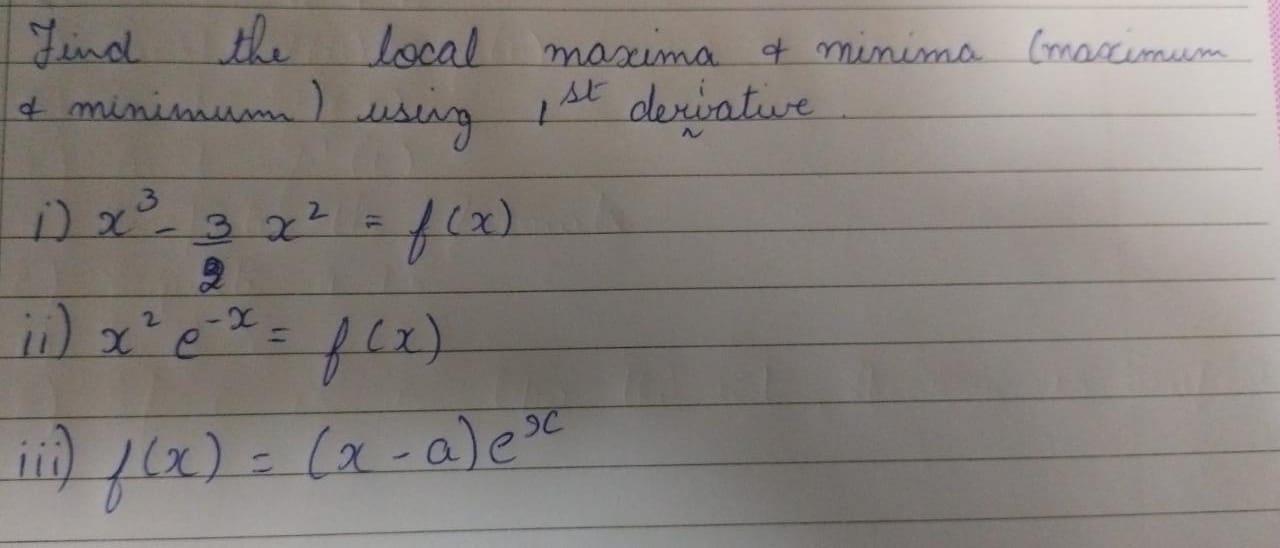 Find the local maxima & minima (maximum
& minimum) using 1st derivative.
i) x³ - 3/2 x² = f(x)
ii) x² e⁻ˣ = f(x)
iii) f(x) = (x - a)eˣ